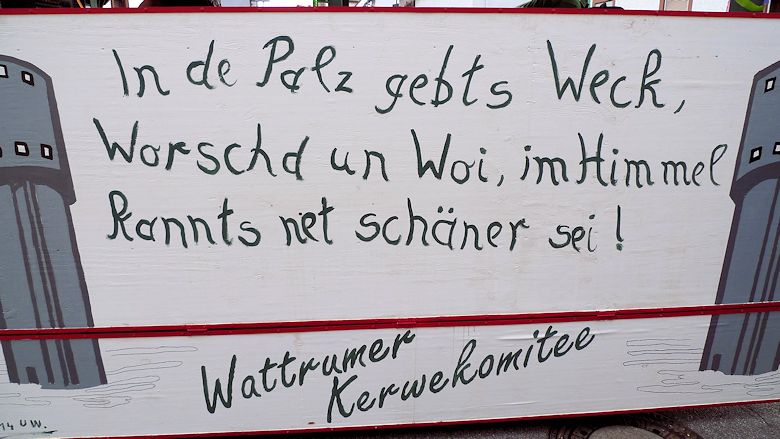 In de Palz gebts Weck,
Worschd un Woi, im Himmel
kannts net schäner sei!
Wattrumer
Kerwekomitee
14 UW.